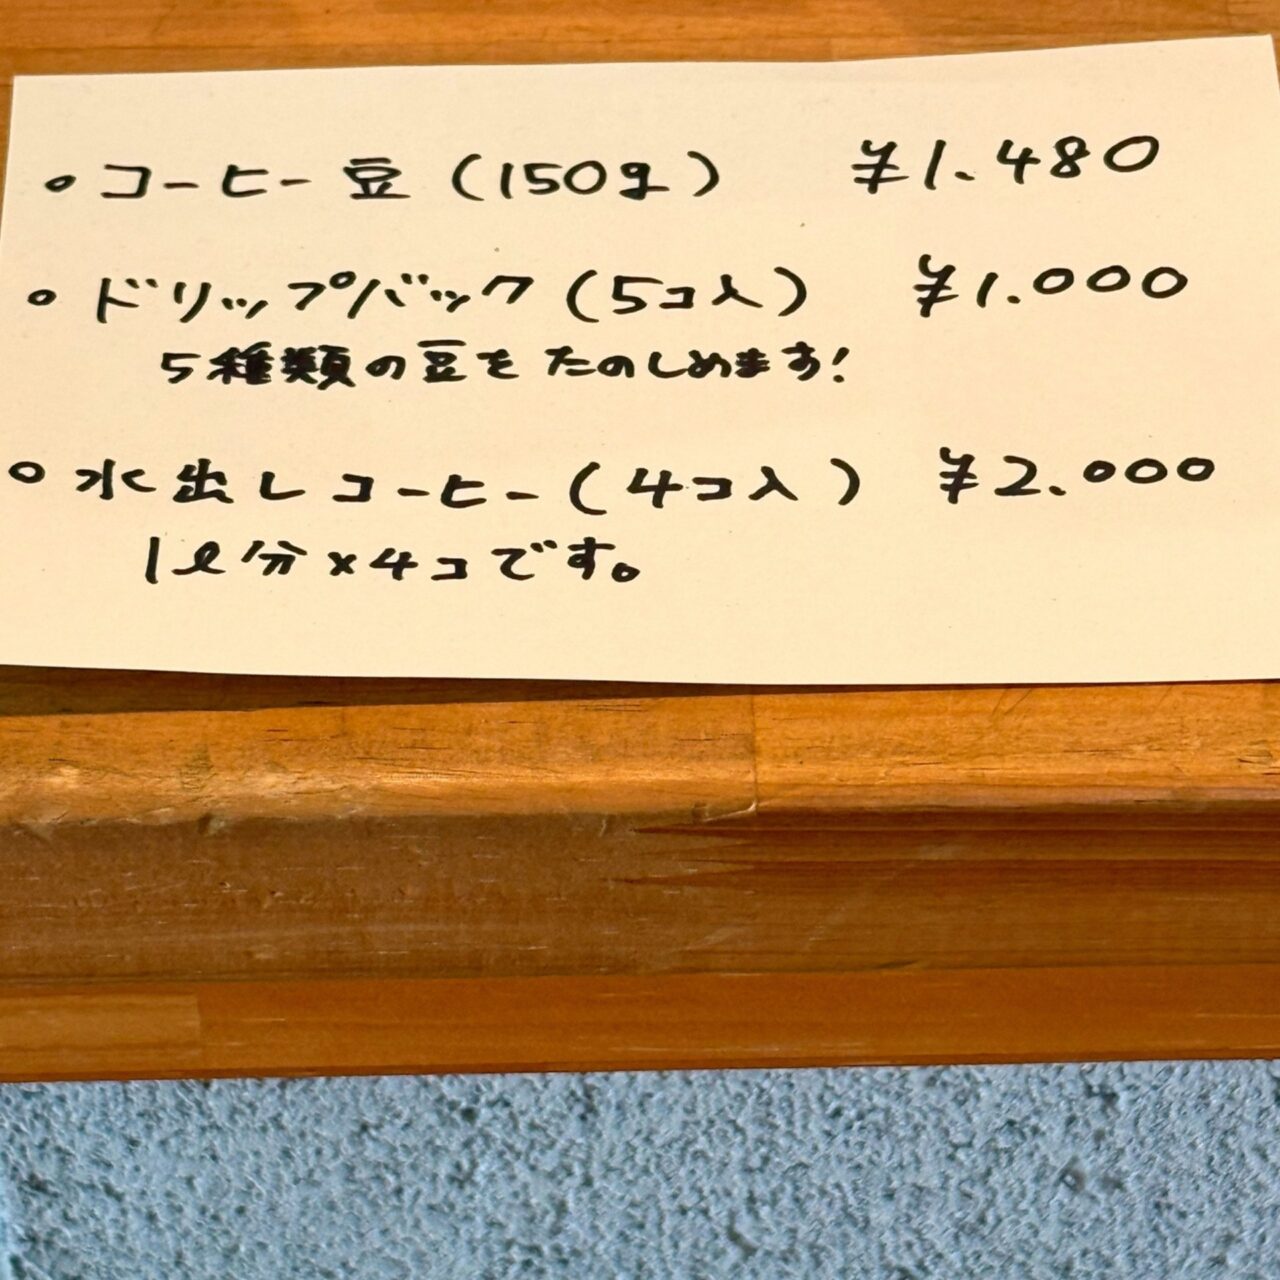 。コーヒー豆(150g) ¥1.480
。ドリップバック(5コ入) ¥1.000
5種類の豆をたのしめます!
。水出しコーヒー(4コ入) ¥2.000
1ℓ分×4コです。